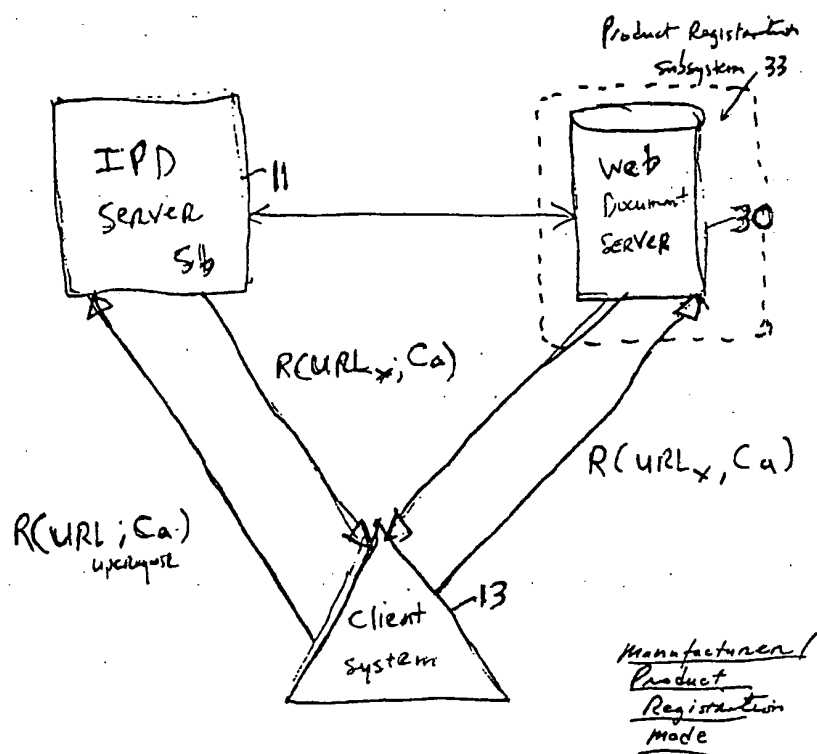 Product Registration
Subsystem 33
IPD
SERVER
11
5b
Web
Document
SERVER
30
R(URLx; Ca)
R(URLx, Ca)
R(URL; Ca)
Client
System
13
Manufacturer/
Product
Registration
Mode